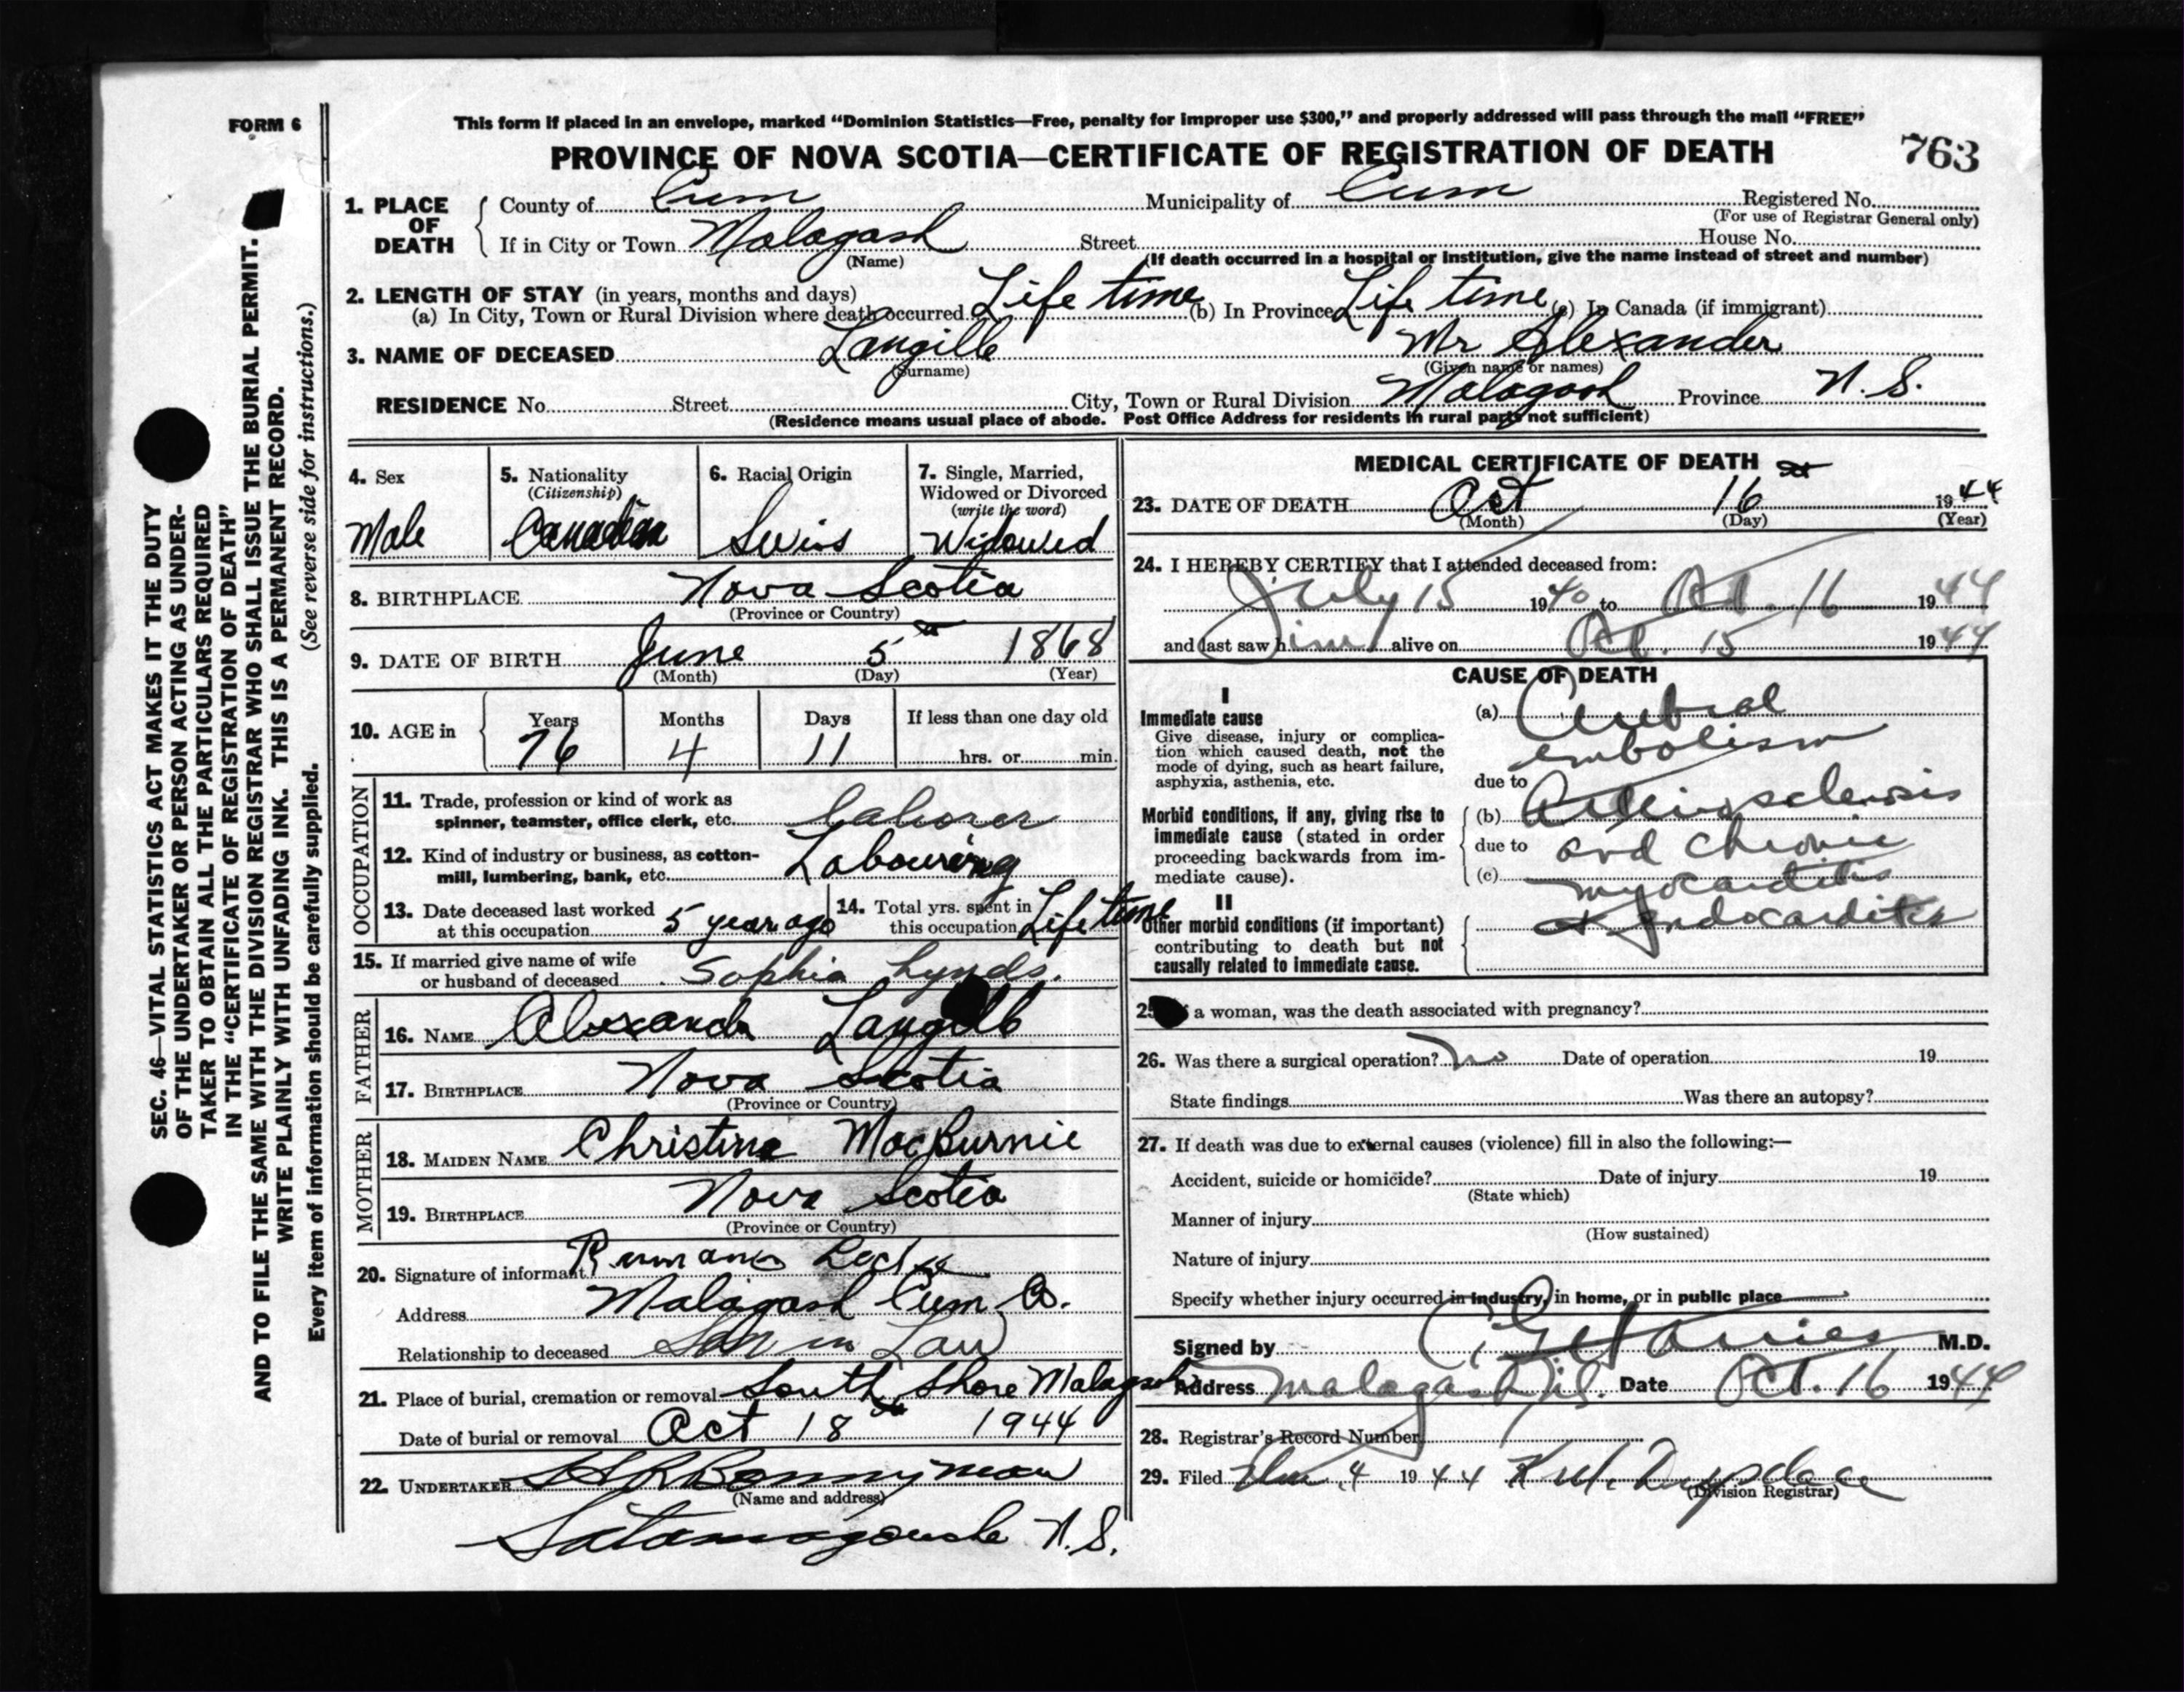 FORM 6
This form if placed in an envelope, marked “Dominion Statistics—Free, penalty for improper use $300,” and properly addressed will pass through the mail “FREE”
PROVINCE OF NOVA SCOTIA—CERTIFICATE OF REGISTRATION OF DEATH
763
1. PLACE OF DEATH
County of Cum Municipality of Cum Registered No.
(For use of Registrar General only)
If in City or Town Malagash Street House No.
(Name)
(If death occurred in a hospital or institution, give the name instead of street and number)
2. LENGTH OF STAY (in years, months and days)
(a) In City, Town or Rural Division where death occurred Life time (b) In Province Life time (c) In Canada (if immigrant)
3. NAME OF DECEASED Langille Mr Alexander
(Surname) (Given name or names)
RESIDENCE No. Street City, Town or Rural Division Malagash Province N.S.
(Residence means usual place of abode. Post Office Address for residents in rural parts not sufficient)
4. Sex
Male
5. Nationality
(Citizenship)
Canadian
6. Racial Origin
Swiss
7. Single, Married,
Widowed or Divorced
(write the word)
Widowed
8. BIRTHPLACE Nova Scotia
(Province or Country)
9. DATE OF BIRTH June 5th 1868
(Month) (Day) (Year)
10. AGE in
Years Months Days If less than one day old
76 4 11 hrs. or min.
OCCUPATION
11. Trade, profession or kind of work as
spinner, teamster, office clerk, etc. laborer
12. Kind of industry or business, as cotton-
mill, lumbering, bank, etc. Labouring
13. Date deceased last worked
at this occupation 5 year ago
14. Total yrs. spent in
this occupation Life time
15. If married give name of wife
or husband of deceased Sophia Lynds.
FATHER
16. NAME Alexander Langille
17. BIRTHPLACE Nova Scotia
(Province or Country)
MOTHER
18. MAIDEN NAME Christine MacBurnie
19. BIRTHPLACE Nova Scotia
(Province or Country)
20. Signature of informant
Address Malagash Cum. Co.
Relationship to deceased Son in Law
21. Place of burial, cremation or removal South Shore Malagash
Date of burial or removal Oct 18th 1944
22. UNDERTAKER
(Name and address)
Tatamagouche N.S.
MEDICAL CERTIFICATE OF DEATH
23. DATE OF DEATH Oct 16th 1944
(Month) (Day) (Year)
24. I HEREBY CERTIFY that I attended deceased from:
July 15 1940 to Oct. 16 1944
and last saw him alive on Oct. 15 1944
CAUSE OF DEATH
I
Immediate cause
Give disease, injury or complica-
tion which caused death, not the
mode of dying, such as heart failure,
asphyxia, asthenia, etc.
(a) Cerebral
embolism
due to
Morbid conditions, if any, giving rise to
immediate cause (stated in order
proceeding backwards from im-
mediate cause).
(b) Arteriosclerosis
due to and chronic
(c) myocarditis
II
Other morbid conditions (if important)
contributing to death but not
causally related to immediate cause.
& Endocarditis
25. If a woman, was the death associated with pregnancy?
26. Was there a surgical operation? no Date of operation 19
State findings Was there an autopsy?
27. If death was due to external causes (violence) fill in also the following:—
Accident, suicide or homicide? Date of injury 19
(State which)
Manner of injury
(How sustained)
Nature of injury
Specify whether injury occurred in industry, in home, or in public place
Signed by M.D.
Address Malagash N.S. Date Oct. 16 1944
28. Registrar's Record Number
29. Filed 4 1944
(Division Registrar)
SEC. 46—VITAL STATISTICS ACT MAKES IT THE DUTY
OF THE UNDERTAKER OR PERSON ACTING AS UNDER-
TAKER TO OBTAIN ALL THE PARTICULARS REQUIRED
IN THE “CERTIFICATE OF REGISTRATION OF DEATH”
AND TO FILE THE SAME WITH THE DIVISION REGISTRAR WHO SHALL ISSUE THE BURIAL PERMIT.
WRITE PLAINLY WITH UNFADING INK. THIS IS A PERMANENT RECORD.
Every item of information should be carefully supplied. (See reverse side for instructions.)